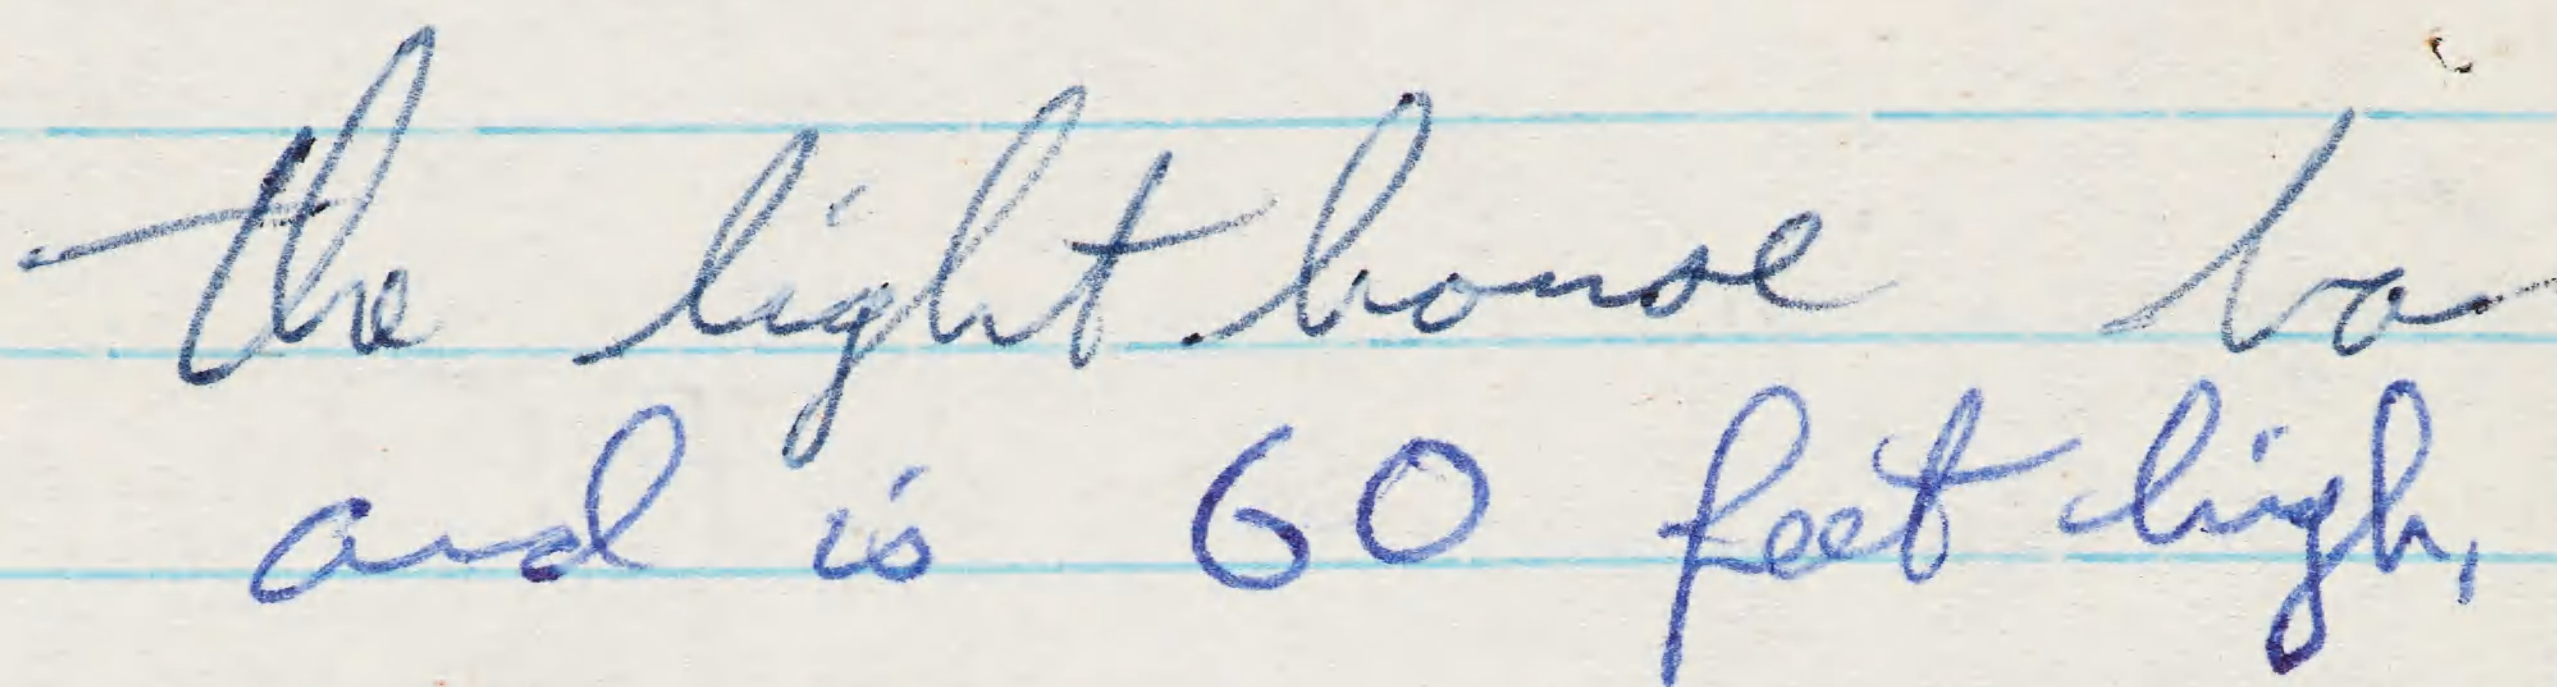 the light house ha
and is 60 feet high,